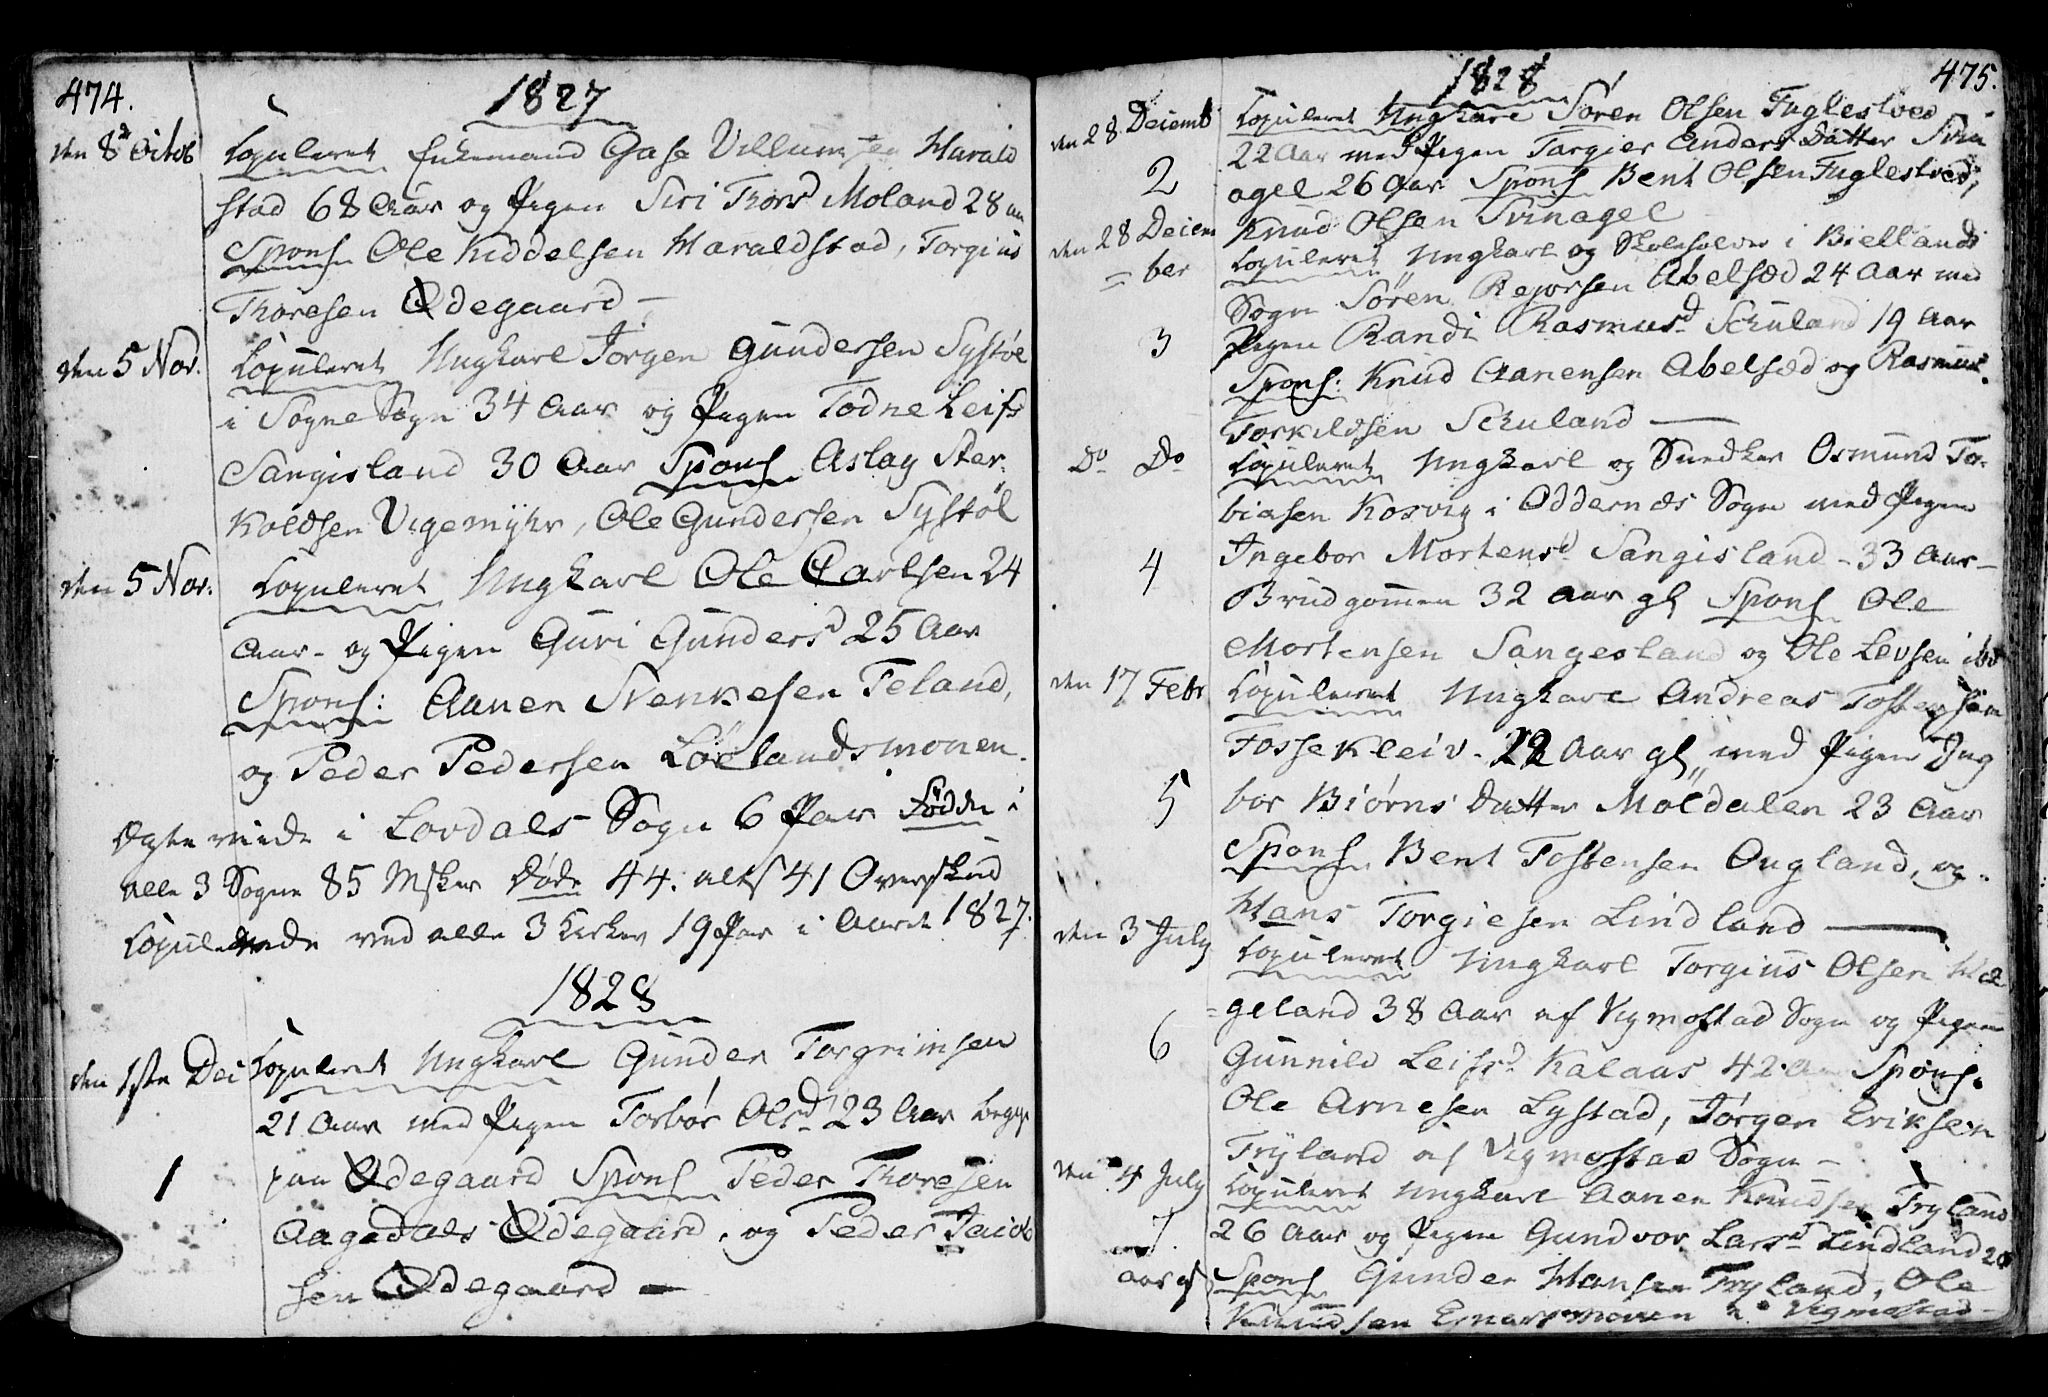 474.
1827
den 8de Octob Copuleret Enkemand Gase Villumsen Harald
stad 68 Aar og Pigen Siri Thorsd Moland 28 aar
Spons Ole Kiddelsen Haraldstad, Torgius
Thoresen Ødegaard –
den 5 Nov. Copuleret Ungkarl Jörgen Gundersen Systøl
i Sogne Sogn 34 Aar og Pigen Todne Leifs
Sangisland 30 Aar Spons Aslag Ster-
Koldsen Vigemyhr, Ole Gundersen Systøl
den 5 Nov. Copuleret Ungkarl Ole Carlsen 24
Aar - og Pigen Guri Gundersd 25 Aar
Spons: Aanen Svenkesen Feland,
og Peder Pedersen Lølandsmonen.
Egteviede i Lovdals Sogn 6 Par Fødde i
alle 3 Sogne 85 Msker Døde 44. altsaa 41 Overskud
Copulerede ved alle 3 Kirker 19 Par i Aaret 1827.
1828
den 1ste Dec Copuleret Ungkarl Gunder Torgrimsen
21 Aar med Pigen Torbor Olsd 23 Aar begge
1 paa Ødegaard Spons Peder Thoresen
Aagedals Ødegaard, og Peder Jacob
sen Ødegaard –
475.
1828
den 28 Decemb Copuleret Ungkarl Sören Olsen Fuglestved
22 Aar med Pigen Targier Anders Datter Svin
2 agel 26 Aar Spons Bent Olsen Fuglestved,
Knud Olsen Svinagel
den 28 Decem Copuleret Ungkarl og Skoleholder i Biellands
= ber Sogn Sören Rejersen Abelsæd 24 Aar med
3 Pigen Randi Rasmusd Schuland 19 Aar
Spons: Knud Aanensen Abelsæd og Rasmus
Torkildsen Schuland
Do Do Copuleret Ungkarl og Snedker Osmund To-
biasen Kosvig i Oddernæs Sogn med Pigen
4 Ingebor Mortensd Sangisland - 33 Aar -
Brudgommen 32 Aar gl Spons Ole
Mortensen Sangesland og Ole Levsen ibd
den 17 Febr Copuleret Ungkarl Andreas Tostensen
Fossekleiv - 22 Aar gl med Pigen Ing
5 bor Biørns Datter Moldalen 23 Aar
Spons Bent Tostensen Ougland, og
Hans Torgiesen Lindland
den 3 July Copuleret Ungkarl Torgius Olsen Hæ
= geland 38 Aar af Vigmostad Sogn og Pigen
6 Gunnild Leifsd Kalaas 42 Aar Spons.
Ole Arnesen Lystad, Jørgen Eriksen
Tryland af Vigmostad Sogn –
den 4 July Copuleret Ungkarl Aanen Knudsen Tryland
7. 26 Aar og Pigen Gundvor Larsd Lindland 20
aar gl Spons Gunder Hansen Tryland, Ole
Knudsen Enersmoen Vigmostad –